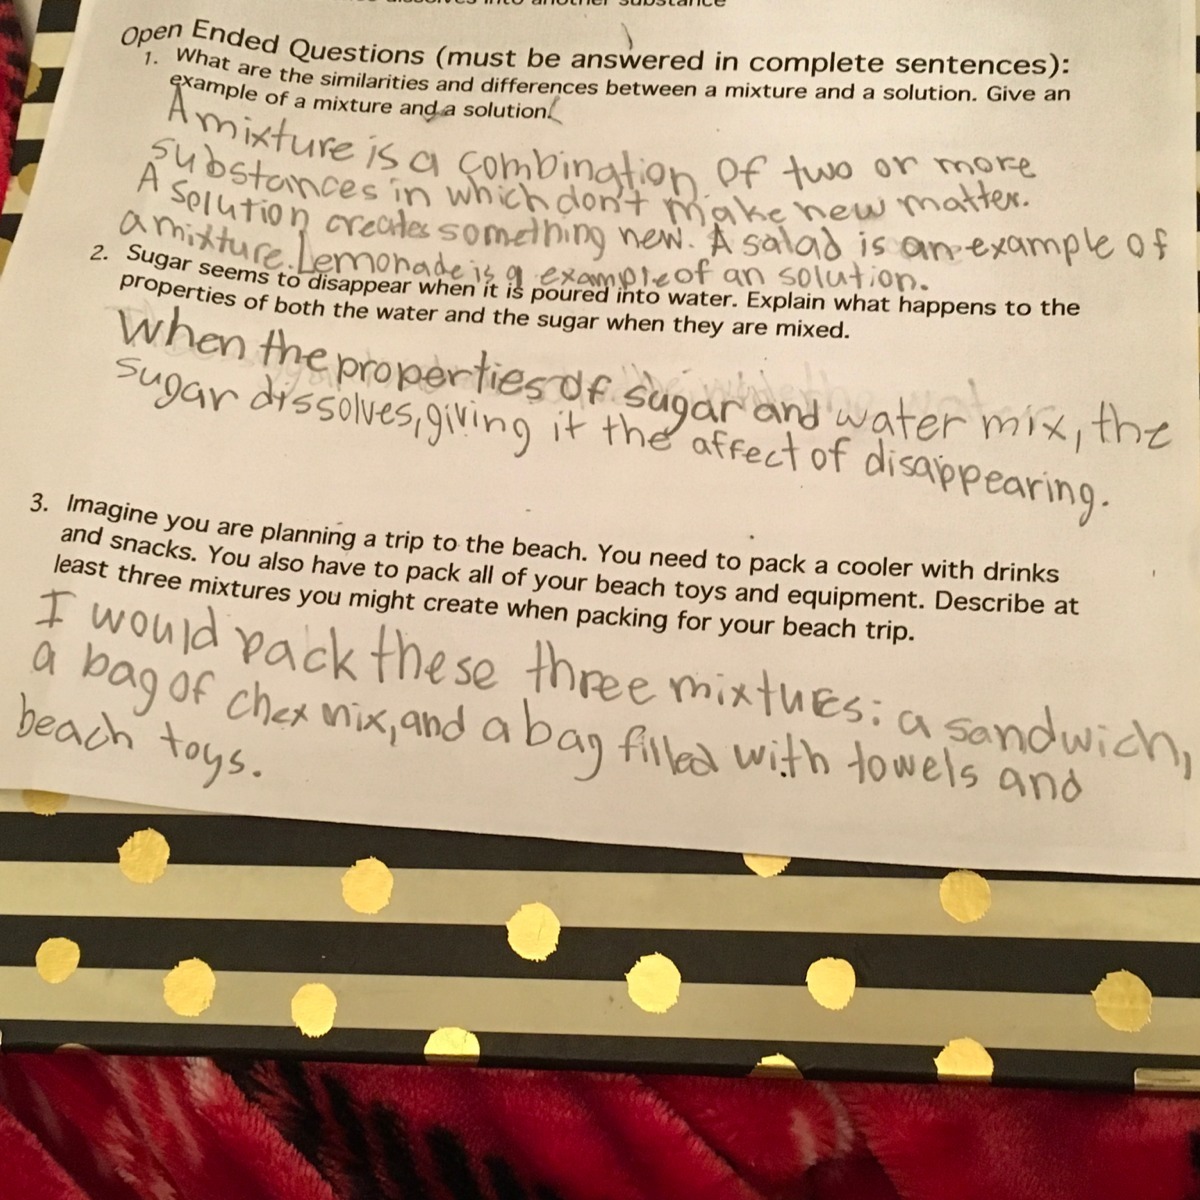 Open Ended Questions (must be answered in complete sentences):
1. What are the similarities and differences between a mixture and a solution. Give an
example of a mixture and a solution.
A mixture is a combination of two or more
substances in which don't make new matter.
A solution creates something new. A salad is an example of
a mixture. Lemonade is a example of an solution.
2. Sugar seems to disappear when it is poured into water. Explain what happens to the
properties of both the water and the sugar when they are mixed.
When the properties of sugar and water mix, the
sugar dissolves, giving it the affect of disappearing.
3. Imagine you are planning a trip to the beach. You need to pack a cooler with drinks
and snacks. You also have to pack all of your beach toys and equipment. Describe at
least three mixtures you might create when packing for your beach trip.
I would pack these three mixtures: a sandwich,
a bag of chex mix, and a bag filled with towels and
beach toys.